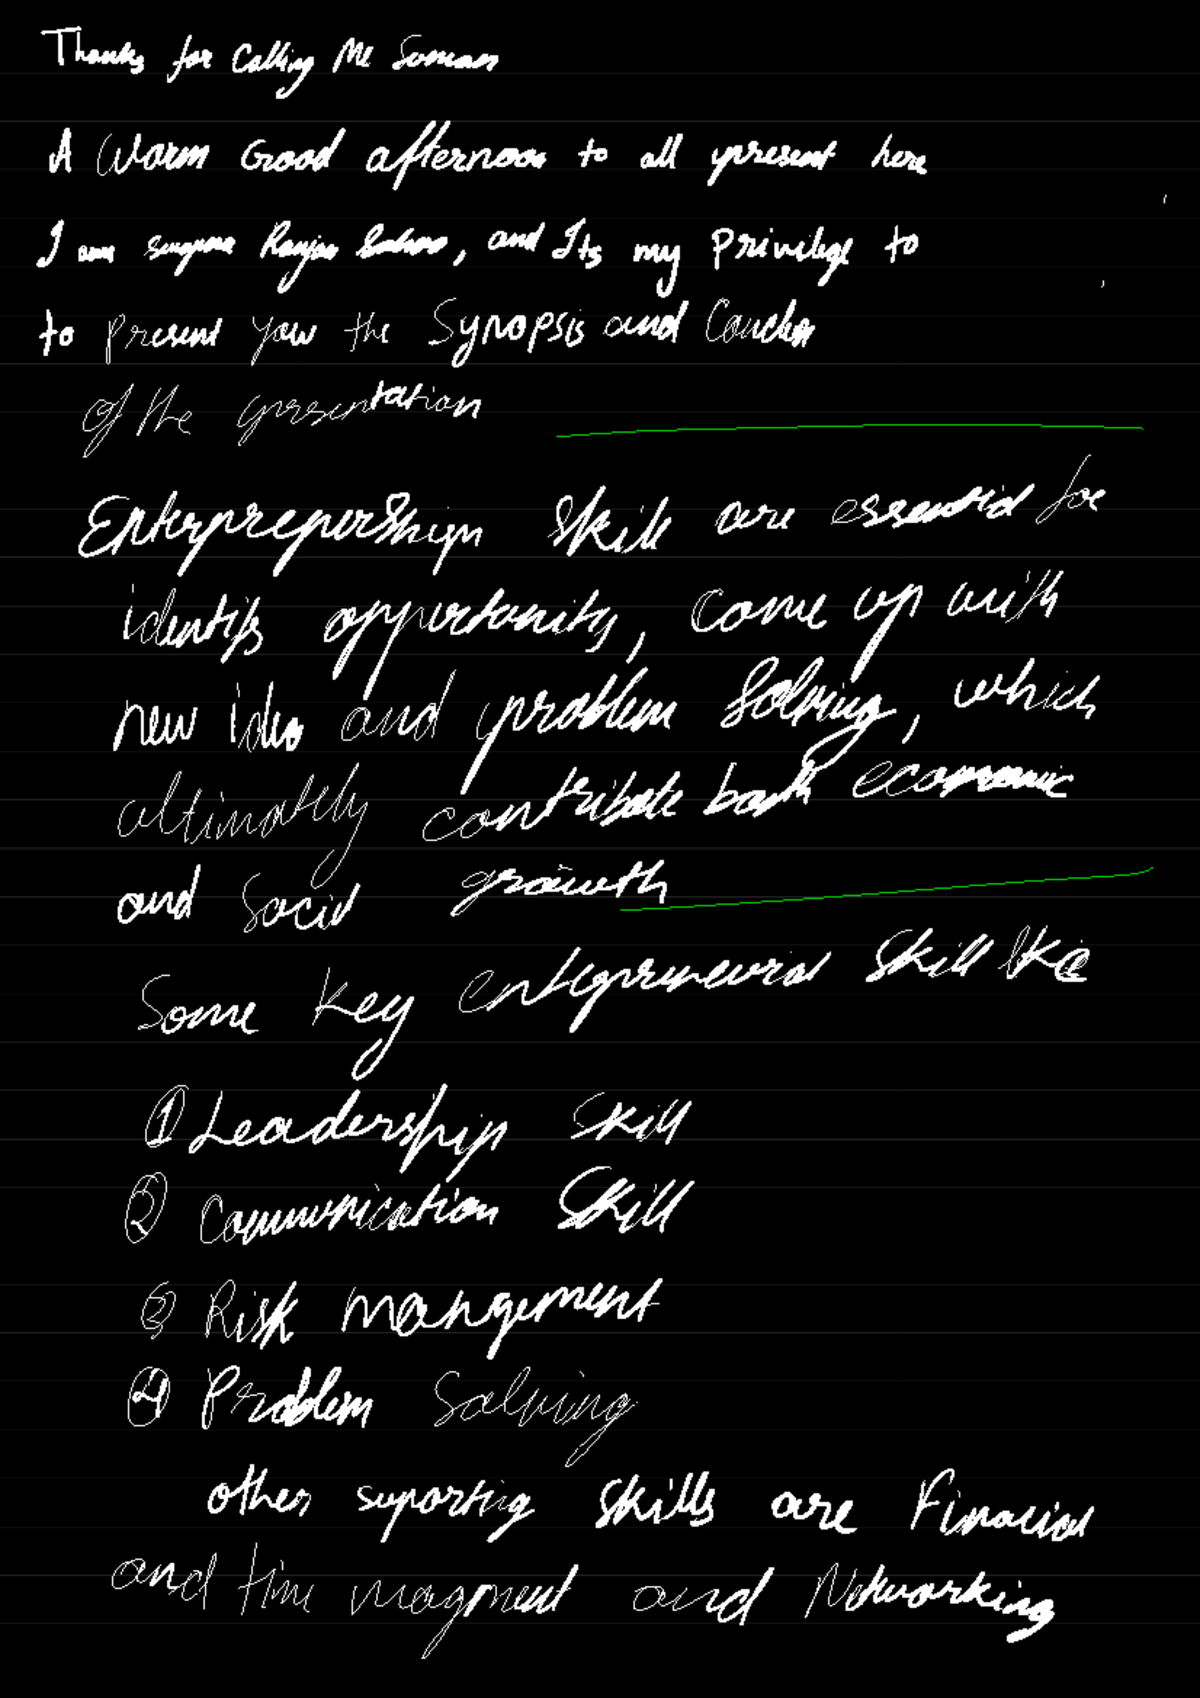 Thanks for Calling Me Suman
A Warm Good afternoon to all present here
I am Ranjan, and Its my Privilege to
to present you the Synopsis and
of the presentation
Skill are essential for
identify opportunity, come up with
new idea and problem Solving, which
ultimately contribute both economic
and Social growth
Some key Skill like
① Leadership Skill
② Communication Skill
③ Risk mangement
④ Problem Solving
other suporting skills are Finacial
and time magment and Networking